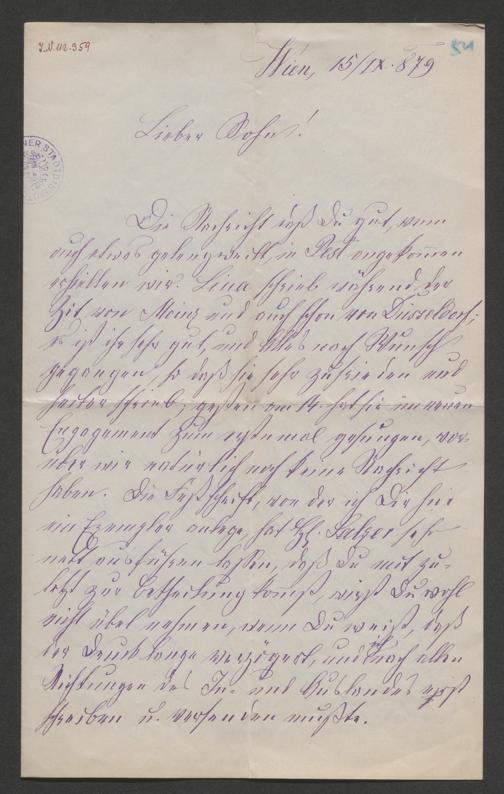 J.N. 112.359
54
Wien, 15/IX. 879
Lieber Sohn!
Die Nachricht daß Du gut, wenn
auch etwas gelangweilt, in Pest angekommen
erhielten wir. Lina schrieb während der
Zeit von Mainz und auch schon von Düsseldorf;
es ist ihr sehr gut und Alles nach Wunsch
gegangen, so daß sie sehr zufrieden und
heiter schrieb; gestern am 14. hat sie im neuen
Engagement zum erstenmal gesungen, wor-
über wir natürlich noch keine Nachricht
haben. Die Festschrift, von der ich Dir hie
ein Exemplar anlege, hat H. Salzer sehr
nett ausführen lassen, daß Du mit zu-
letzt zur Betheilung kommst, wirst Du wohl
nicht übel nehmen, wenn Du weißt, daß
der Druck lange verzögert, und ich nach allen
Richtungen des In- und Auslandes erst
schreiben u. versenden mußte.